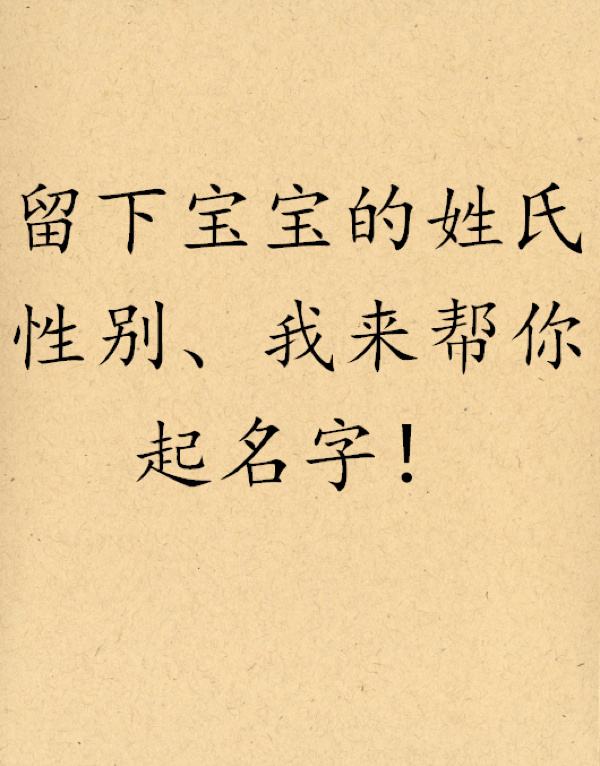 留下宝宝的姓氏
性别、我来帮你
起名字！